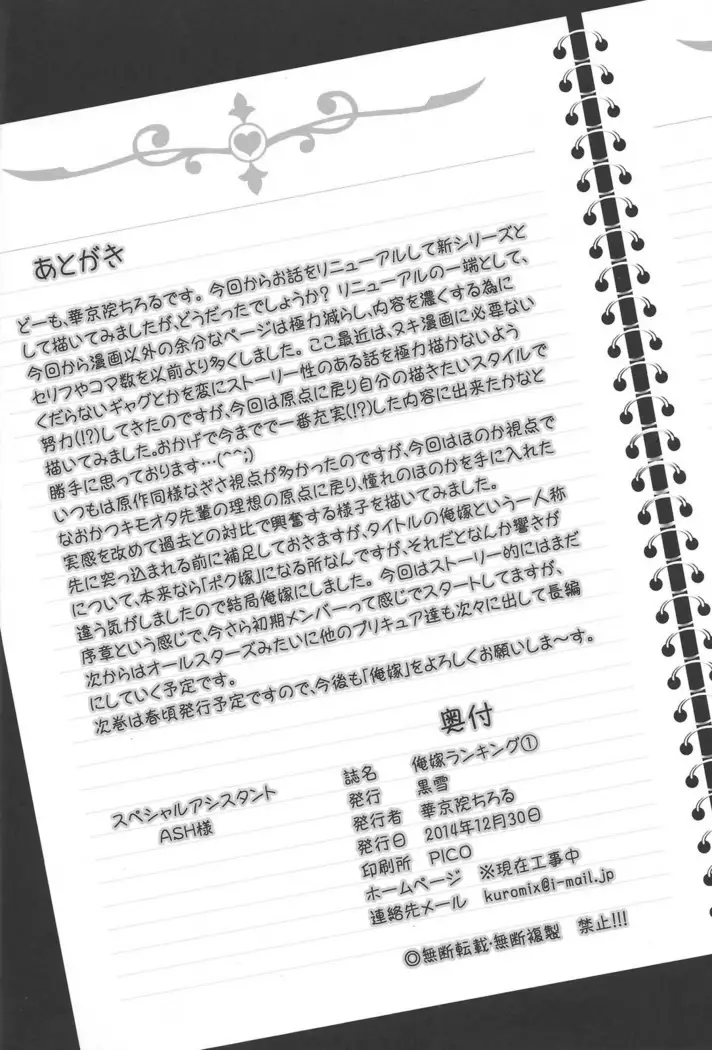 あとがき
どーも、華京院ちろるです。今回からお話をリニューアルして新シリーズと
して描いてみましたが、どうだったでしょうか？リニューアルの一端として、
今回から漫画以外の余分なページは極力減らし、内容を濃くする為に
セリフやコマ数を以前より多くしました。ここ最近は、ヌキ漫画に必要ない
くだらないギャグとかを変にストーリー性のある話を極力描かないよう
努力(!?)してきたのですが、今回は原点に戻り自分の描きたいスタイルで
描いてみました。おかげで今までで一番充実(!?)した内容に出来たかなと
勝手に思っております…(^^;)
いつもは原作同様なぎさ視点が多かったのですが、今回はほのか視点で
なおかつキモオタ先輩の理想の原点に戻り、憧れのほのかを手に入れた
実感を改めて過去との対比で興奮する様子を描いてみました。
先に突っ込まれる前に補足しておきますが、タイトルの俺嫁という一人称
について、本来なら「ボク嫁」になる所なんですが、それだとなんか響きが
違う気がしましたので結局俺嫁にしました。今回はストーリー的にはまだ
序章という感じで、今さら初期メンバーって感じでスタートしてますが、
次からはオールスターズみたいに他のプリキュア達も次々に出して長編
にしていく予定です。
次巻は春頃発行予定ですので、今後も「俺嫁」をよろしくお願いしま〜す。
スペシャルアシスタント
ASH様
奥付
誌名 俺嫁ランキング①
発行 黒雪
発行者 華京院ちろる
発行日 2014年12月30日
印刷所 PICO
ホームページ ※現在工事中
連絡先メール kuromix@i-mail.jp
◎無断転載・無断複製 禁止!!!